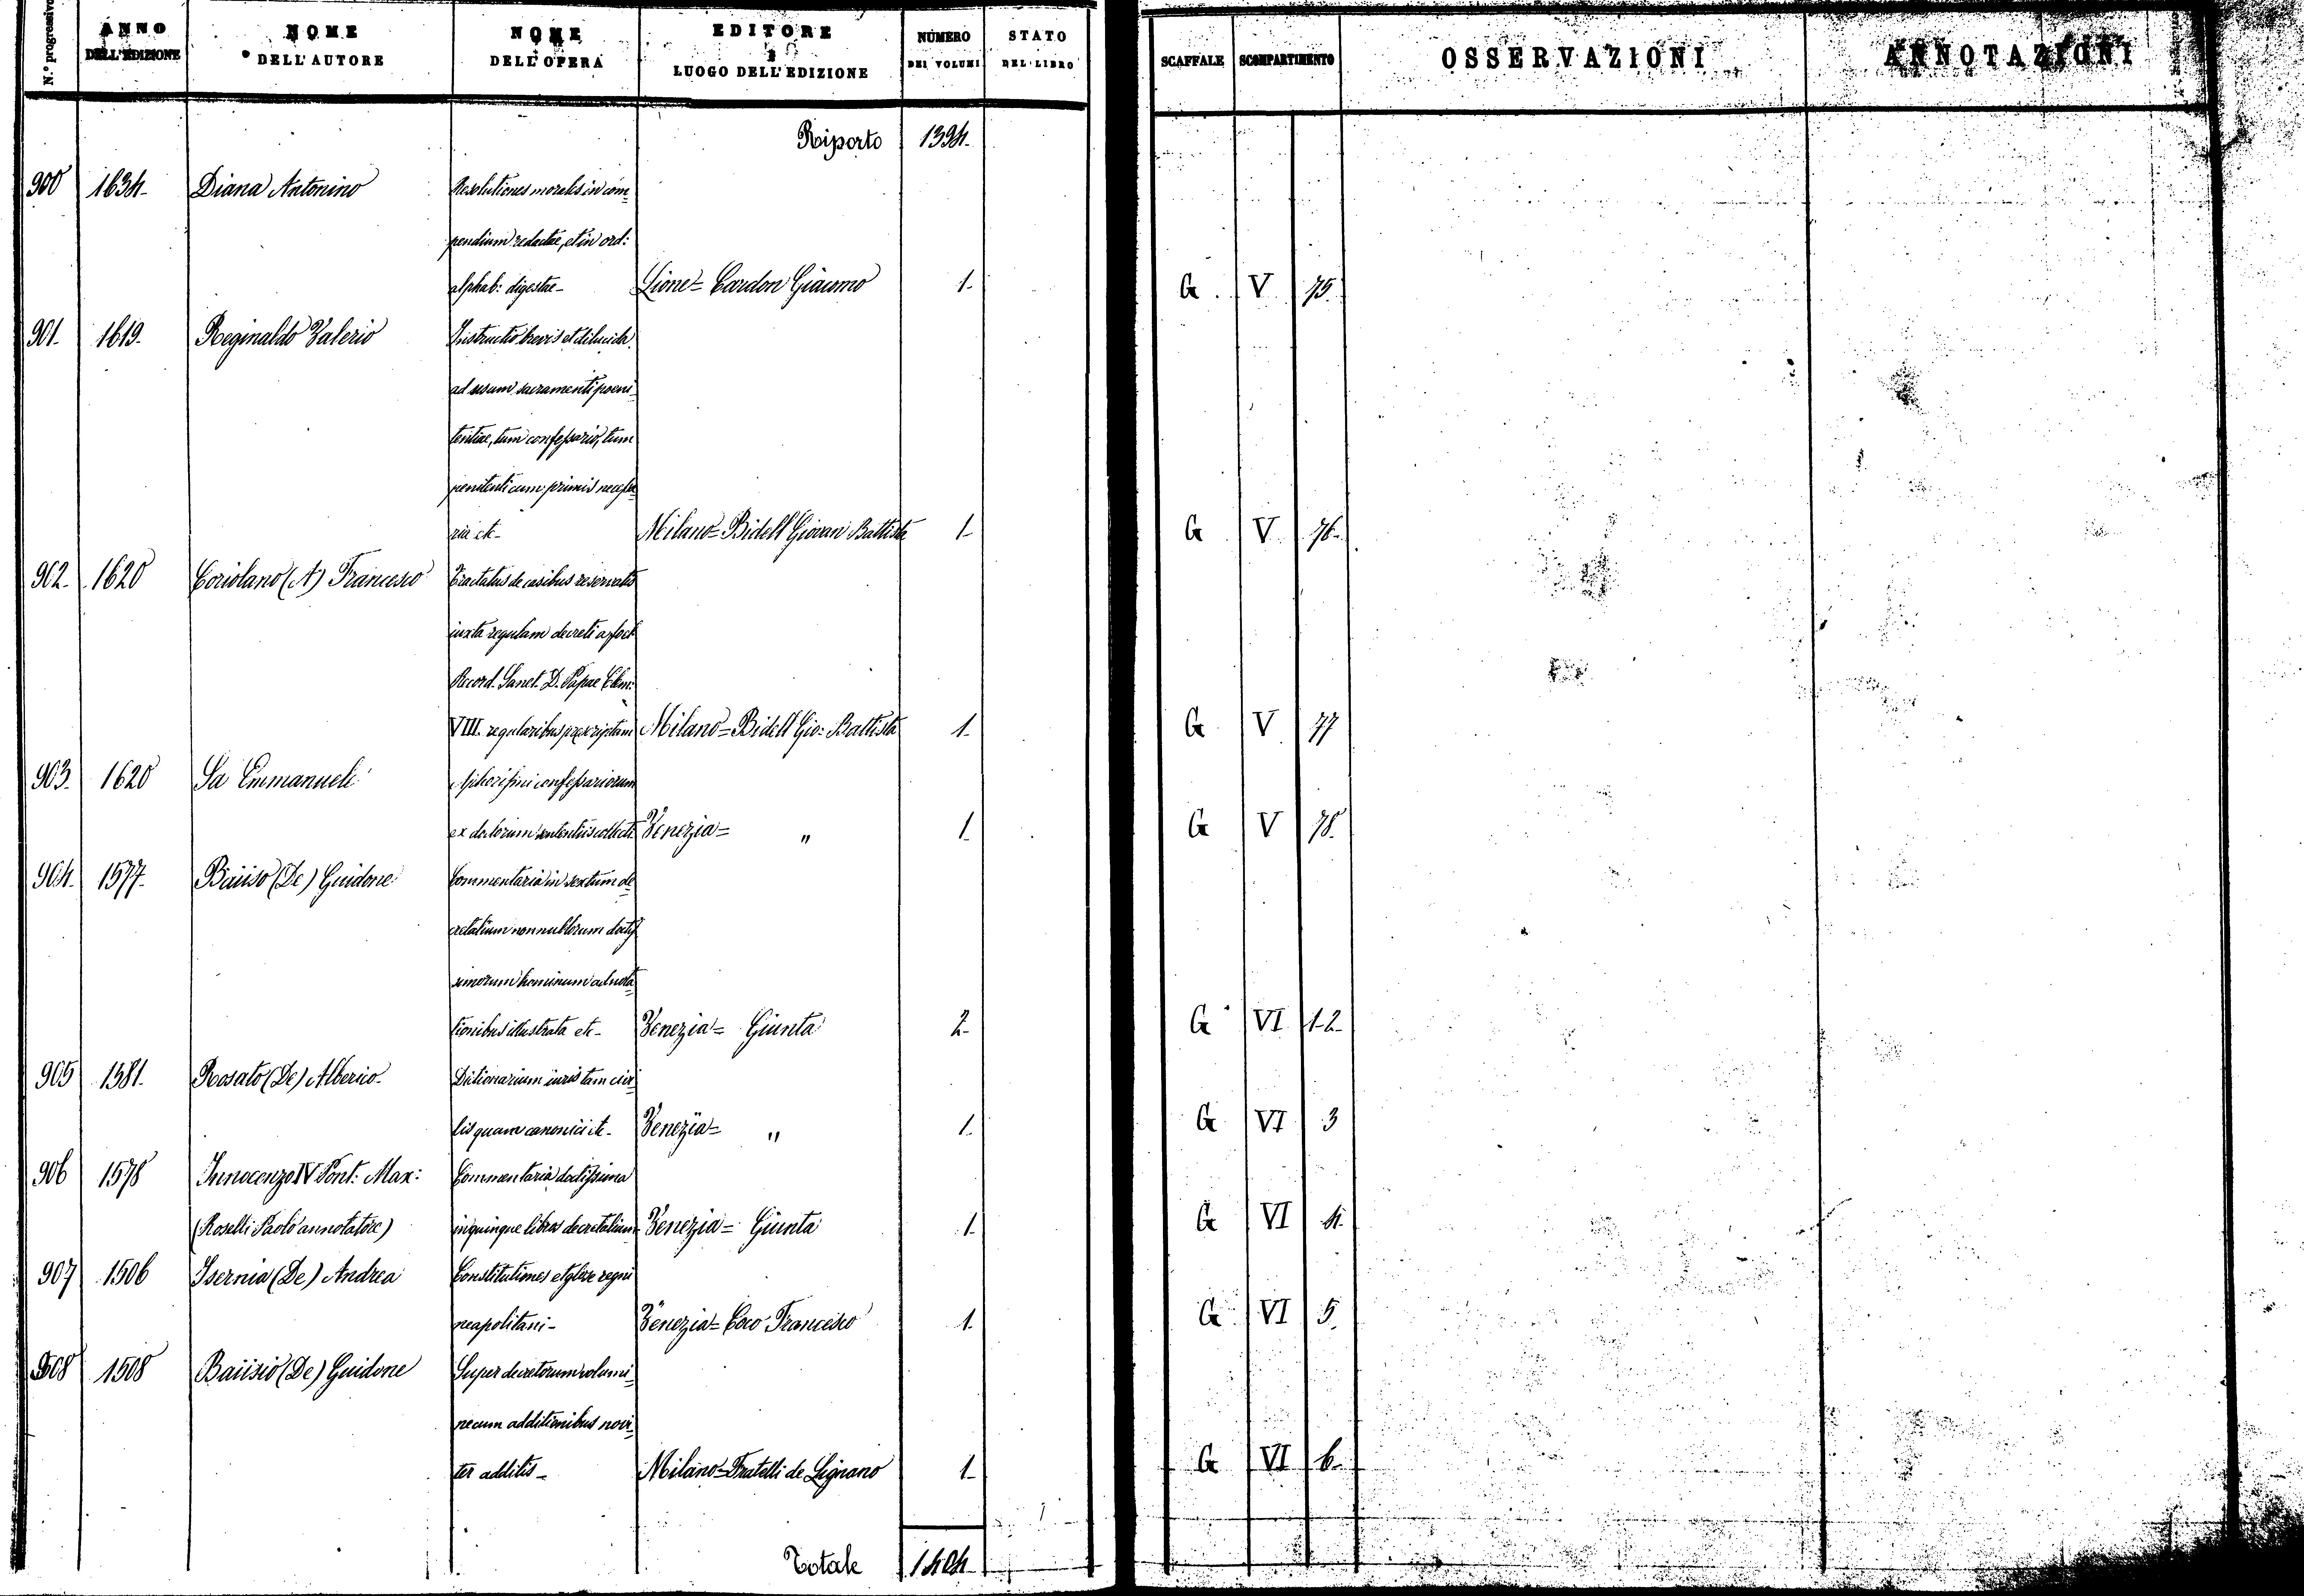 N.° progressivo
ANNO DELL'EDIZIONE
NOME DELL'AUTORE
NOME DELL'OPERA
EDITORE E LUOGO DELL'EDIZIONE
NUMERO DEI VOLUMI
STATO DEL LIBRO
SCAFFALE SCOMPARTIMENTO OSSERVAZIONI ANNOTAZIONI
Riporto 1394.
900 1634. Diana Antonino Resolutiones morales in com=
pendium redactae, et in ord:
alphab: digestae- Lione= Cardon Giacomo 1. G V 75.
901. 1619. Reginaldo Valerio Instructio brevis et dilucida
ad usum sacramenti poeni=
tentiae, tum confessario, tum
penitenti cum primis necessa=
ria etc- Milano= Bidell Giovan Battista 1. G V 76.
902. 1620 Coriolano (A) Francesco Tractatus de casibus reservatis
iuxta regulam decreti a foel:
Record. Sanct. D. Papae Clem:
VIII. regularibus praescriptam Milano= Bidell Gio: Battista 1. G V 77
903. 1620 Sa Emmanuele Aphorismi confessariorum
ex doctorum sententiis collecti Venezia= " 1. G V 78.
904. 1577. Baiiso (De) Guidone Commentaria in sextum de=
cretalium nonnullorum doctis=
simorum hominum adnota=
tionibus illustrata etc- Venezia= Giunta 2. G VI 1-2
905 1581. Rosato (De) Alberico. Dictionarium iuris tam civi=
lis quam canonici etc- Venezia= " 1. G VI 3
906 1578 Innocenzo IV Pont: Max: Commentaria doctissima
(Roselli Paolo annotatore) in quinque libros decretalium Venezia= Giunta 1. G VI 4.
907 1506 Isernia (De) Andrea Constitutiones et glose regni
neapolitani- Venezia= Coco Francesco 1. G VI 5.
908 1508 Baiisio (De) Guidone Super decretorum volumi=
ne cum additionibus novi=
ter additis- Milano= Fratelli de Lignano 1. G VI 6.
Totale 1404.